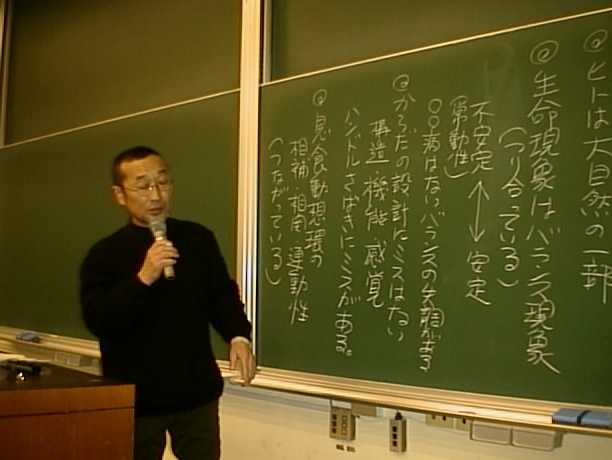 ◎ヒトは大自然の一部
◎生命現象はバランス現象
(つり合っている)
不安定 ←→ 安定
(常動性)
○○病はないバランスの失調がある
◎からだの設計にミスはない
構造 機能 感覚
ハンドルさばきにミスがある。
◎息食動想環の
相補・相関 連動性
(つながっている)